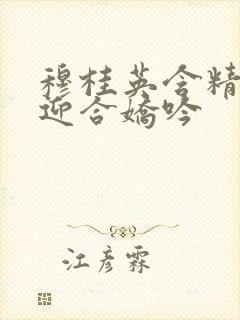 穆桂英含精
迎合娇吟
江彦霖